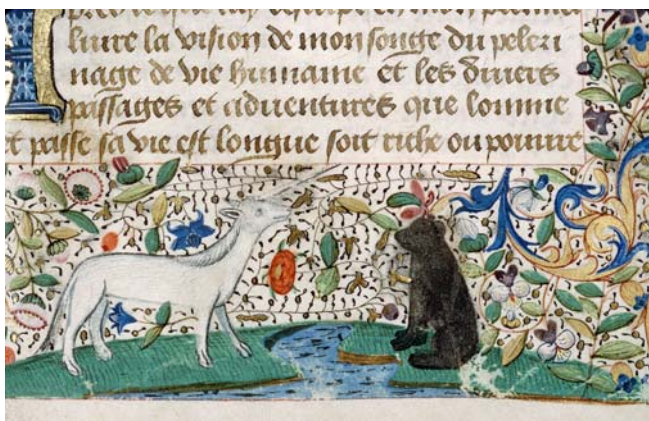 en mon premier
liure la vision de mon songe du peleri
nage de vie humaine et les diuers
passages et aduentures que lomme
t passe sa vie est longue soit riche ou pouure